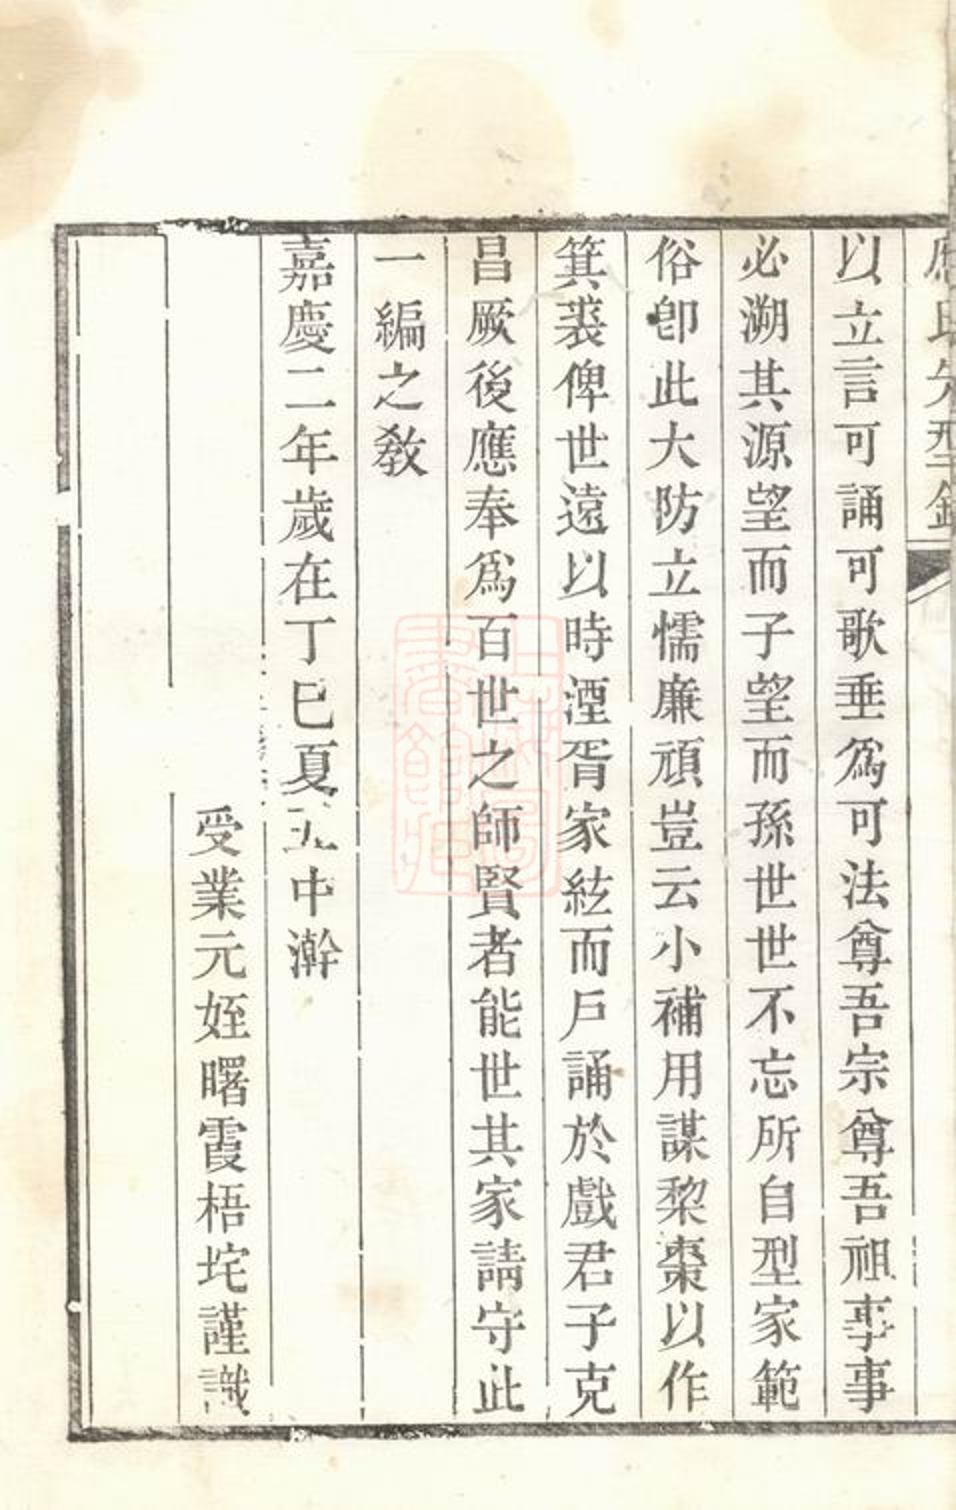 以立言可誦可歌垂爲可法尊吾宗尊吾祖事事
必溯其源望而子望而孫世世不忘所自型家範
俗卽此大防立懦廉頑豈云小補用謀棃棗以作
箕裘俾世遠以時湮胥家絃而戶誦於戲君子克
昌厥後應奉爲百世之師賢者能世其家請守此
一編之敎
嘉慶二年歲在丁巳夏五中澣
受業元姪曙霞梧垞謹識